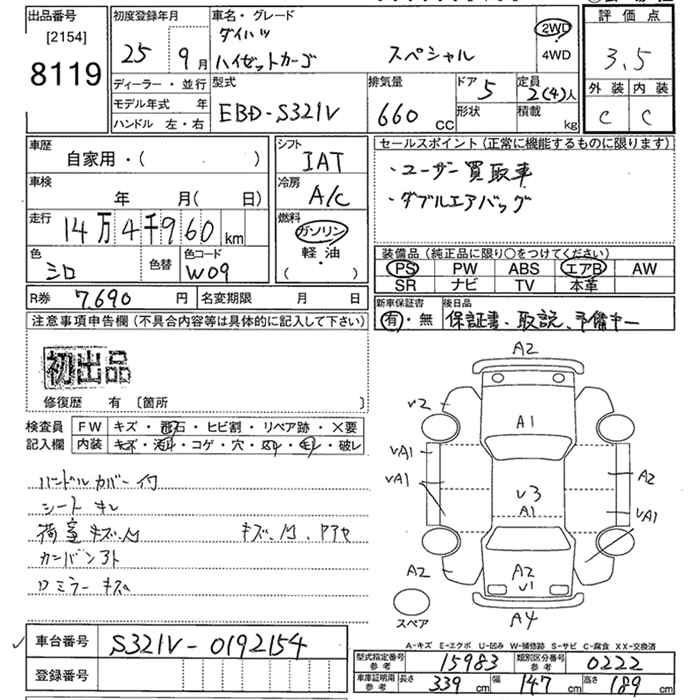 出品番号
[2154]
8119
初度登録年月
25 9月
車名・グレード
ダイハツ
ハイゼットカーゴ スペシャル
2WD
4WD
評価点
3.5
外装 内装
C C
ディーラー・並行
モデル年式 年
ハンドル 左・右
型式
EBD-S321V
排気量
660 cc
ドア 5
形状
定員
2(4)人
積載
kg
車歴
自家用・( )
車検
年 月( 日)
走行
14万4千960 km
色
シロ
色替
色コード
W09
シフト
IAT
冷房
A/C
燃料
ガソリン
軽油
( )
セールスポイント(正常に機能するものに限ります)
・ユーザー買取車
・ダブルエアバッグ
装備品(純正品に限り○をつけてください)
PS PW ABS エアB AW
SR ナビ TV 本革
R券 7,690 円 名変期限 月 日
新車保証書
有・無
後日品
保証書、取説、予備キー
注意事項申告欄(不具合内容等は具体的に記入して下さい)
初出品
修復歴 有 〔箇所
検査員
記入欄
FW キズ・飛石・ヒビ割・リペア跡・×要
内装 キズ・汚れ・コゲ・穴・
・破レ
ハンドルカバー付
シート
荷室 キズ、
キズ、
カンバン
ロミラー キズ
A2
V2
A1
VA1
VA1
V3
A1
A2
VA1
A2
A2
V1
A4
スペア
A-キズ E-エクボ U-凹み W-補修跡 S-サビ C-腐食 XX-交換済
車台番号
S321V-0192154
登録番号
型式指定番号
参考
15983
類別区分番号
参考
0222
車庫証明用
参考
長さ 339 cm 幅 147 cm 高さ 189 cm